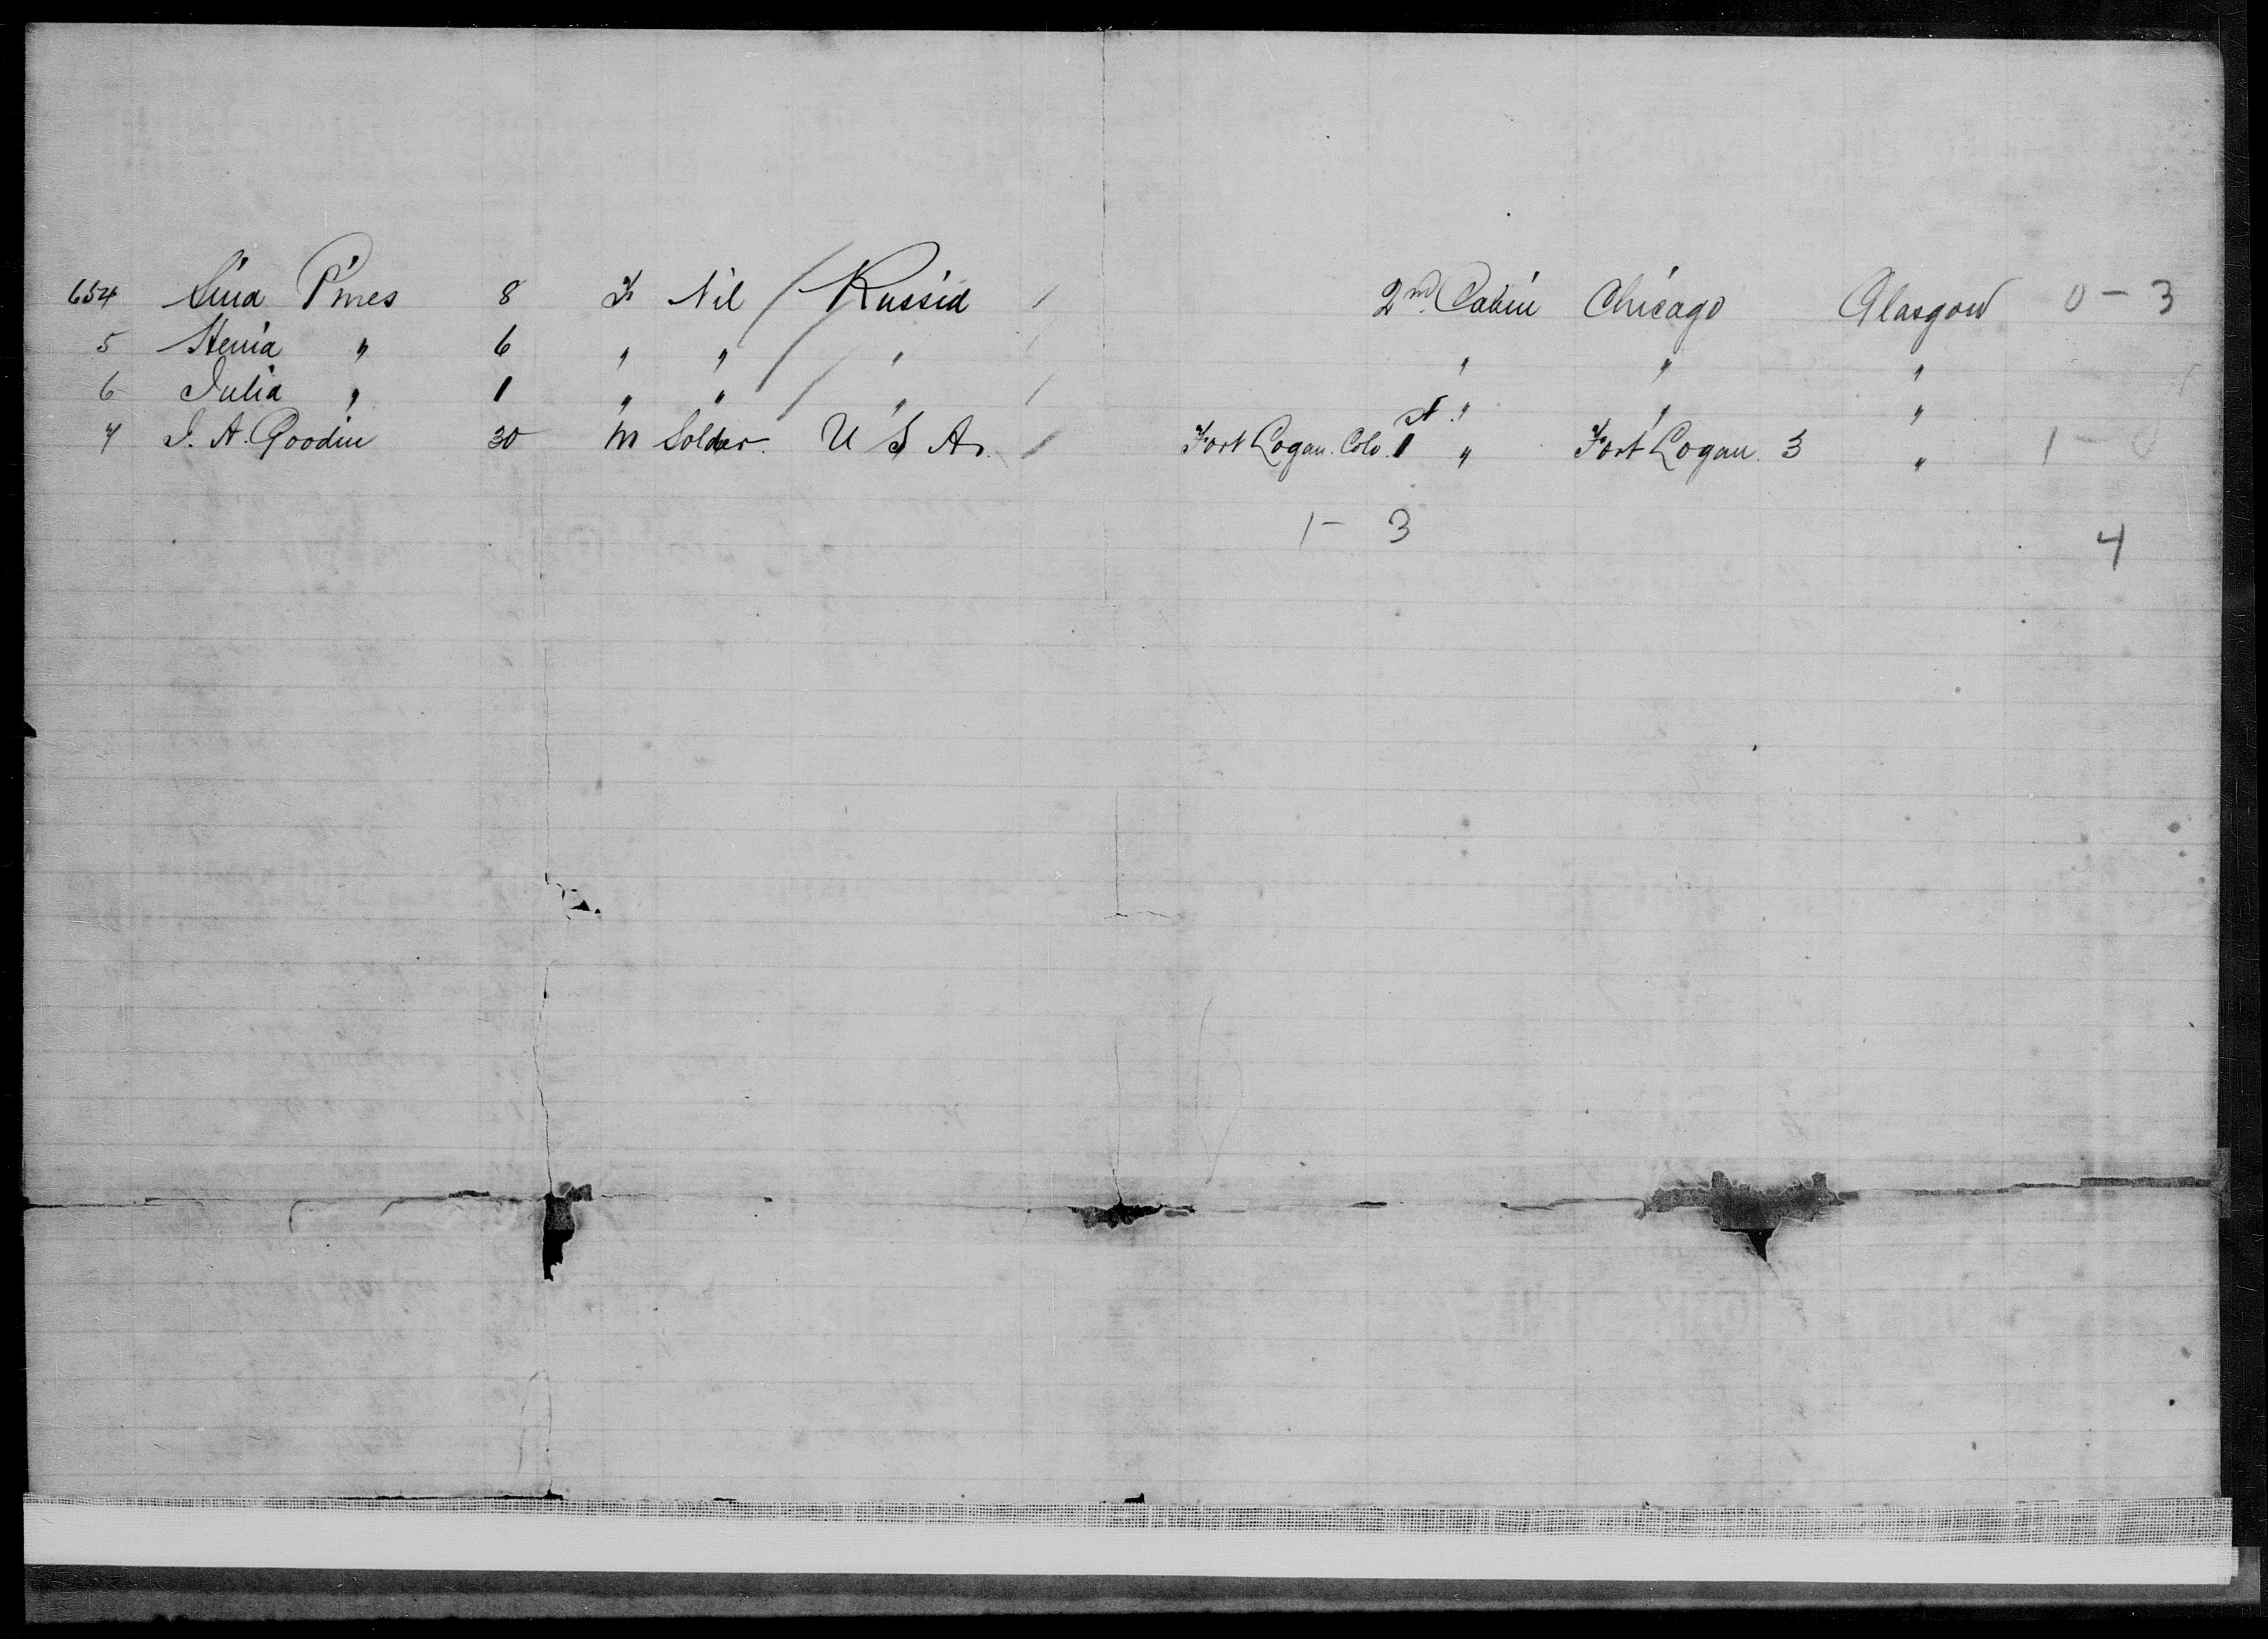 654 Lina Pines 8 F Nil Russia 2nd. Cabin Chicago Glasgow 0 - 3
5 Henia " 6 " " " " " "
6 Julia " 1 " " " " " "
7 J. A. Goodin 30 M Solder. U S A. Fort Logan. Colo. 1st " Fort Logan. 3 " 1 - 0
1 - 3
4